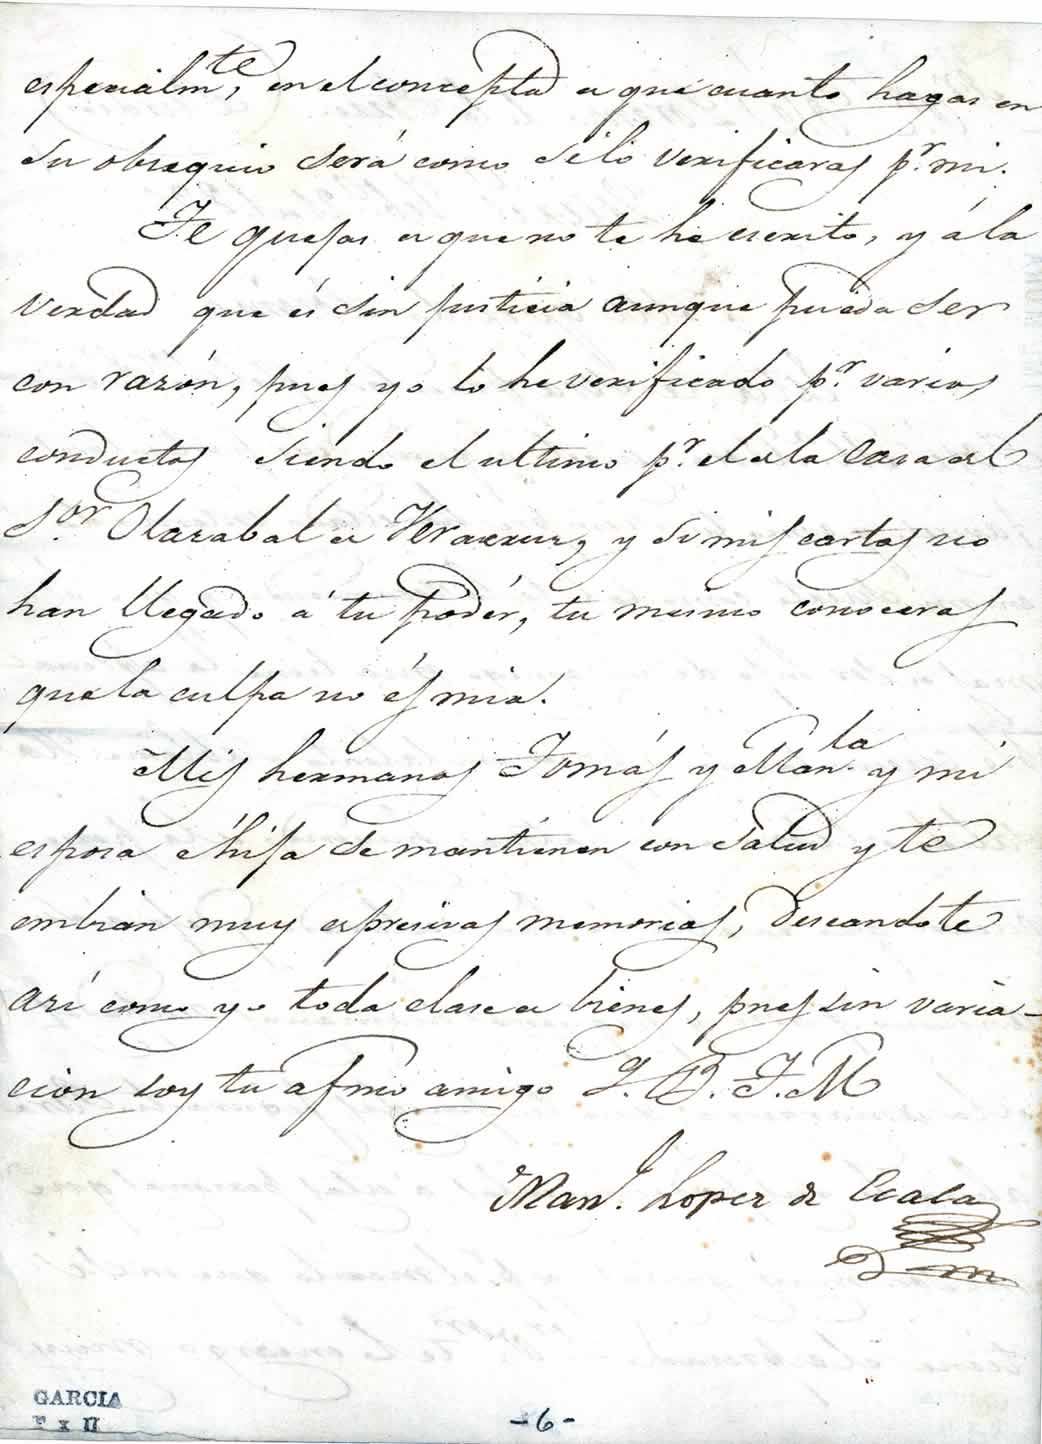 especialm.te, en el concepto de que cuanto hagas en
su obsequio será como si lo verificaras p.r mi.
Te quejas de que no te he escrito, y á la
verdad que és sin justicia aunque pueda ser
con razón, pues yo lo he verificado p.r varios
conductos siendo el ultimo p.r el de la Casa del
S.or Olazabal de Veracruz, y si mis cartas no
han llegado á tu podér, tu mismo conoceras
que la culpa no és mia.
Mis hermanos Tomás y Man.la y mi
esposa é hija se mantienen con salud y te
embian muy espresivas memorias, deseandote
así como yo toda clase de bienes, pues sin varia-
cion soy tu afmo amigo Q.B.T.M
Man.l Lopez de
GARCIA
F x II
-6-